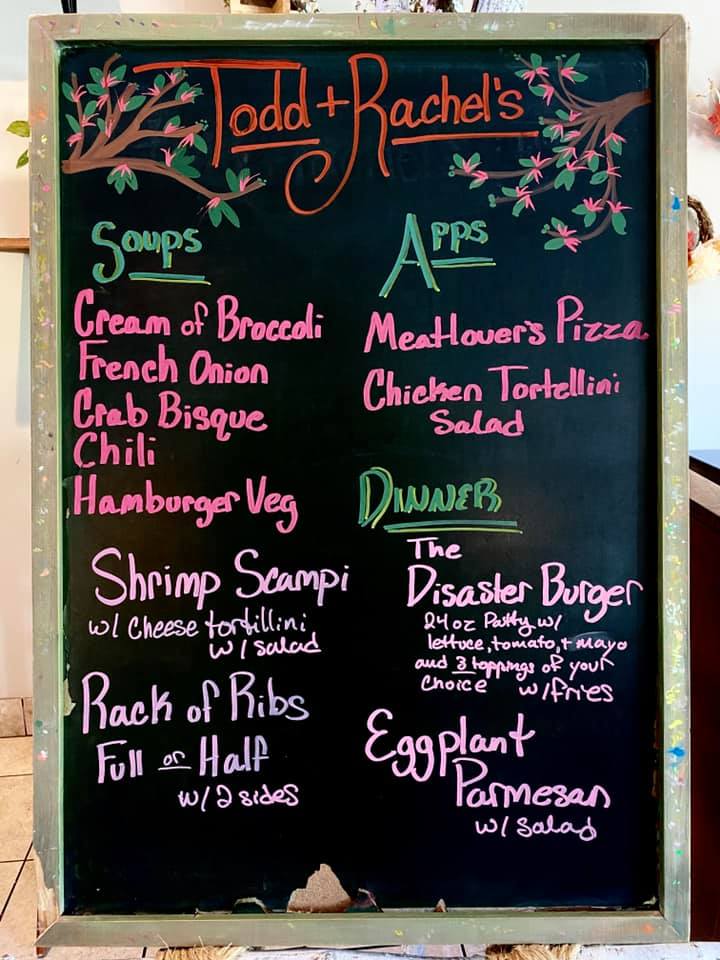 Todd + Rachel's
Soups
Cream of Broccoli
French Onion
Crab Bisque
Chili
Hamburger Veg
Apps
Meatlover's Pizza
Chicken Tortellini
Salad
Dinner
Shrimp Scampi
w/ Cheese tortillini
w/ salad
Rack of Ribs
Full or Half
w/ 2 sides
The
Disaster Burger
24oz Patty w/
lettuce, tomato, + mayo
and 3 toppings of your
choice w/fries
Eggplant
Parmesan
w/ salad